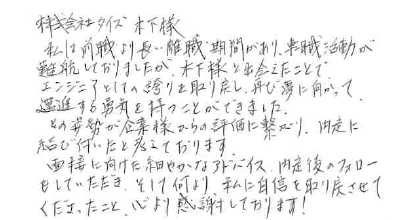 株式会社タイズ 木下様
私は前職より長い離職期間があり、転職活動が
難航しておりましたが、木下様と出会えたことで
エンジニアとしての誇りを取り戻し、再び夢に向かって
邁進する勇気を持つことができました。
その姿勢が企業様からの評価に繋がり、内定に
結び付いたと考えております。
面接に向けた細やかなアドバイス、内定後のフォロー
もしていただき、そして何より、私に自信を取り戻させて
くださったこと、心より感謝しております!